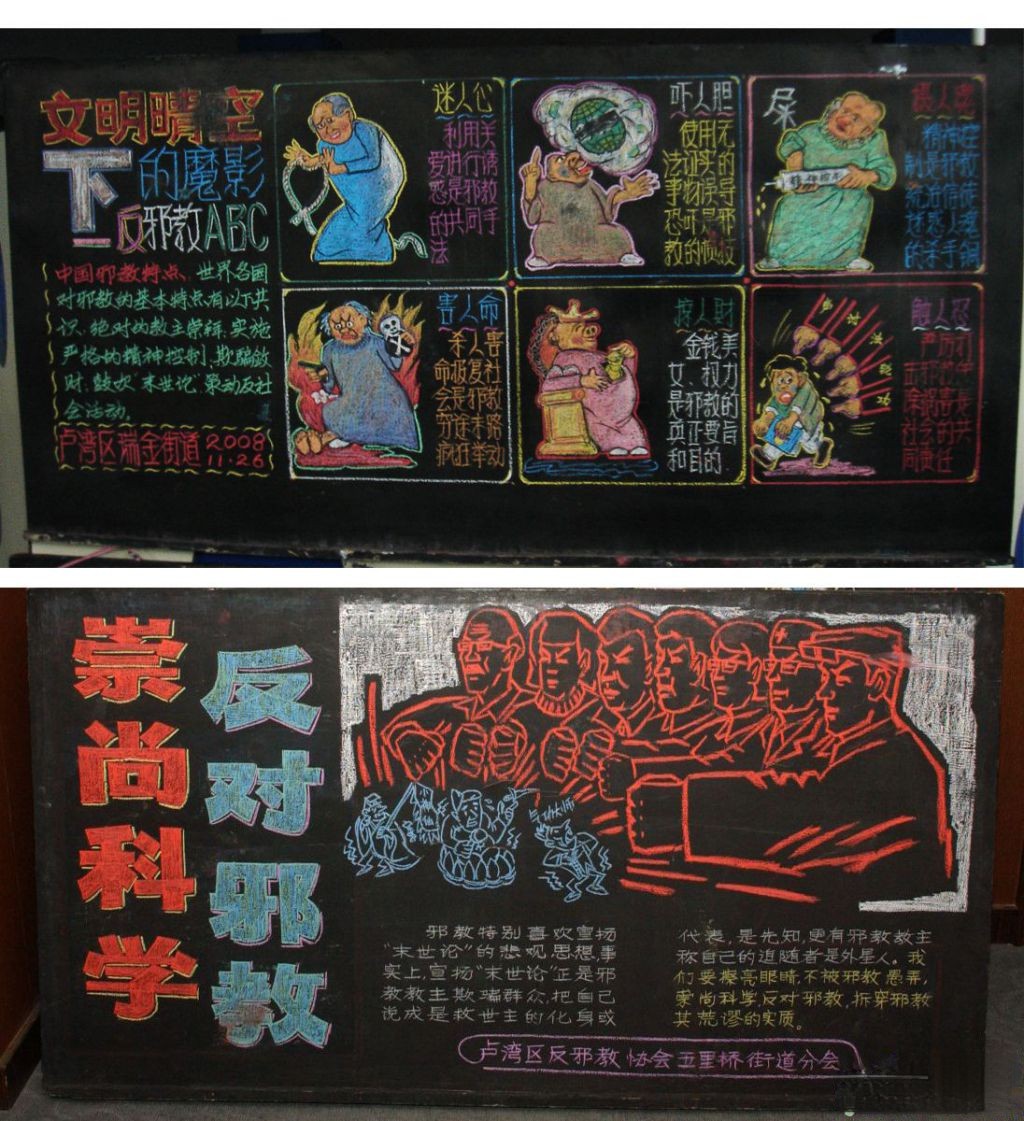 文明晴空
下的魔影
—反邪教ABC
中国邪教特点、世界各国
对邪教的基本特点有以下共
识、绝对的教主崇拜、实施
严格的精神控制、欺骗敛
财、鼓吹"末世论"策动反社
会活动。
卢湾区瑞金街道 2008
11.26
迷人心
利用关
爱进行诱
惑是邪教
的共同手
法
吓人胆
使用无
法证实的
事物误导
恐吓是邪
教的惯技
精神控
制是邪教
统治信徒
的杀手锏
害人命
杀人害
命报复社
会是邪教
穷途末路
疯狂举动
掠人财
金钱美
女、权力
是邪教的
真正要旨
和目的.
严厉打
击邪教
除祸害是
社会的共
同责任
崇尚科学
反对邪教
邪教特别喜欢宣扬
"末世论"的悲观思想,事
实上,宣扬"末世论"正是邪
教教主欺瑞群众,把自己
说成是救世主的化身或
代表,是先知,更有邪教教主
称自己的追随者是外星人。我
们要擦亮眼睛,不被邪教愚弄,
崇尚科学,反对邪教,拆穿邪教
其荒谬的实质。
卢湾区反邪教协会五里桥街道分会